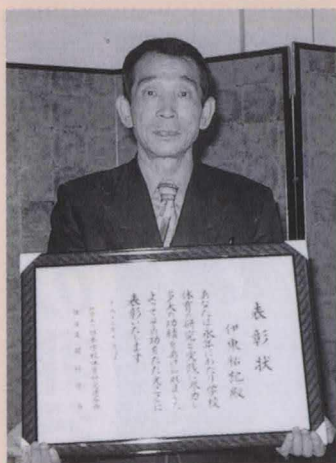 表彰状
伊東祐記殿
あなたは永年にわたり学校
体育の研究と実践に尽力し
多大の功績をあげられました
よってその功をたたえここに
表彰いたします